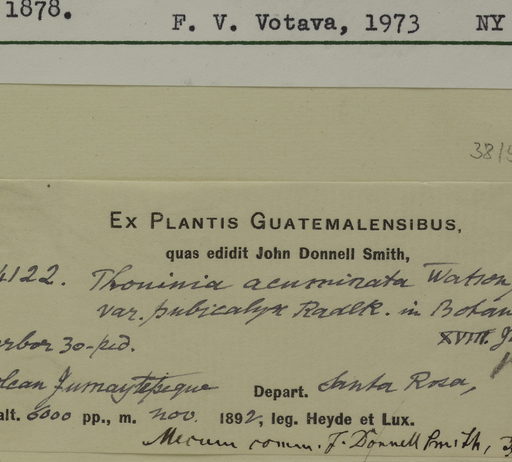 1878.
F. V. Votava, 1973 NY
EX PLANTIS GUATEMALENSIBUS,
quas edidit John Donnell Smith,
4122. Thouinia acuminata Watson,
var. pubicalyx Radlk. in Botan
XVIII.
arbor 30-ped.
Volcan Jumaytepeque Depart. Santa Rosa,
alt. 6000 pp., m. Nov. 1892, leg. Heyde et Lux.
Mecum comm. J. Donnell Smith,